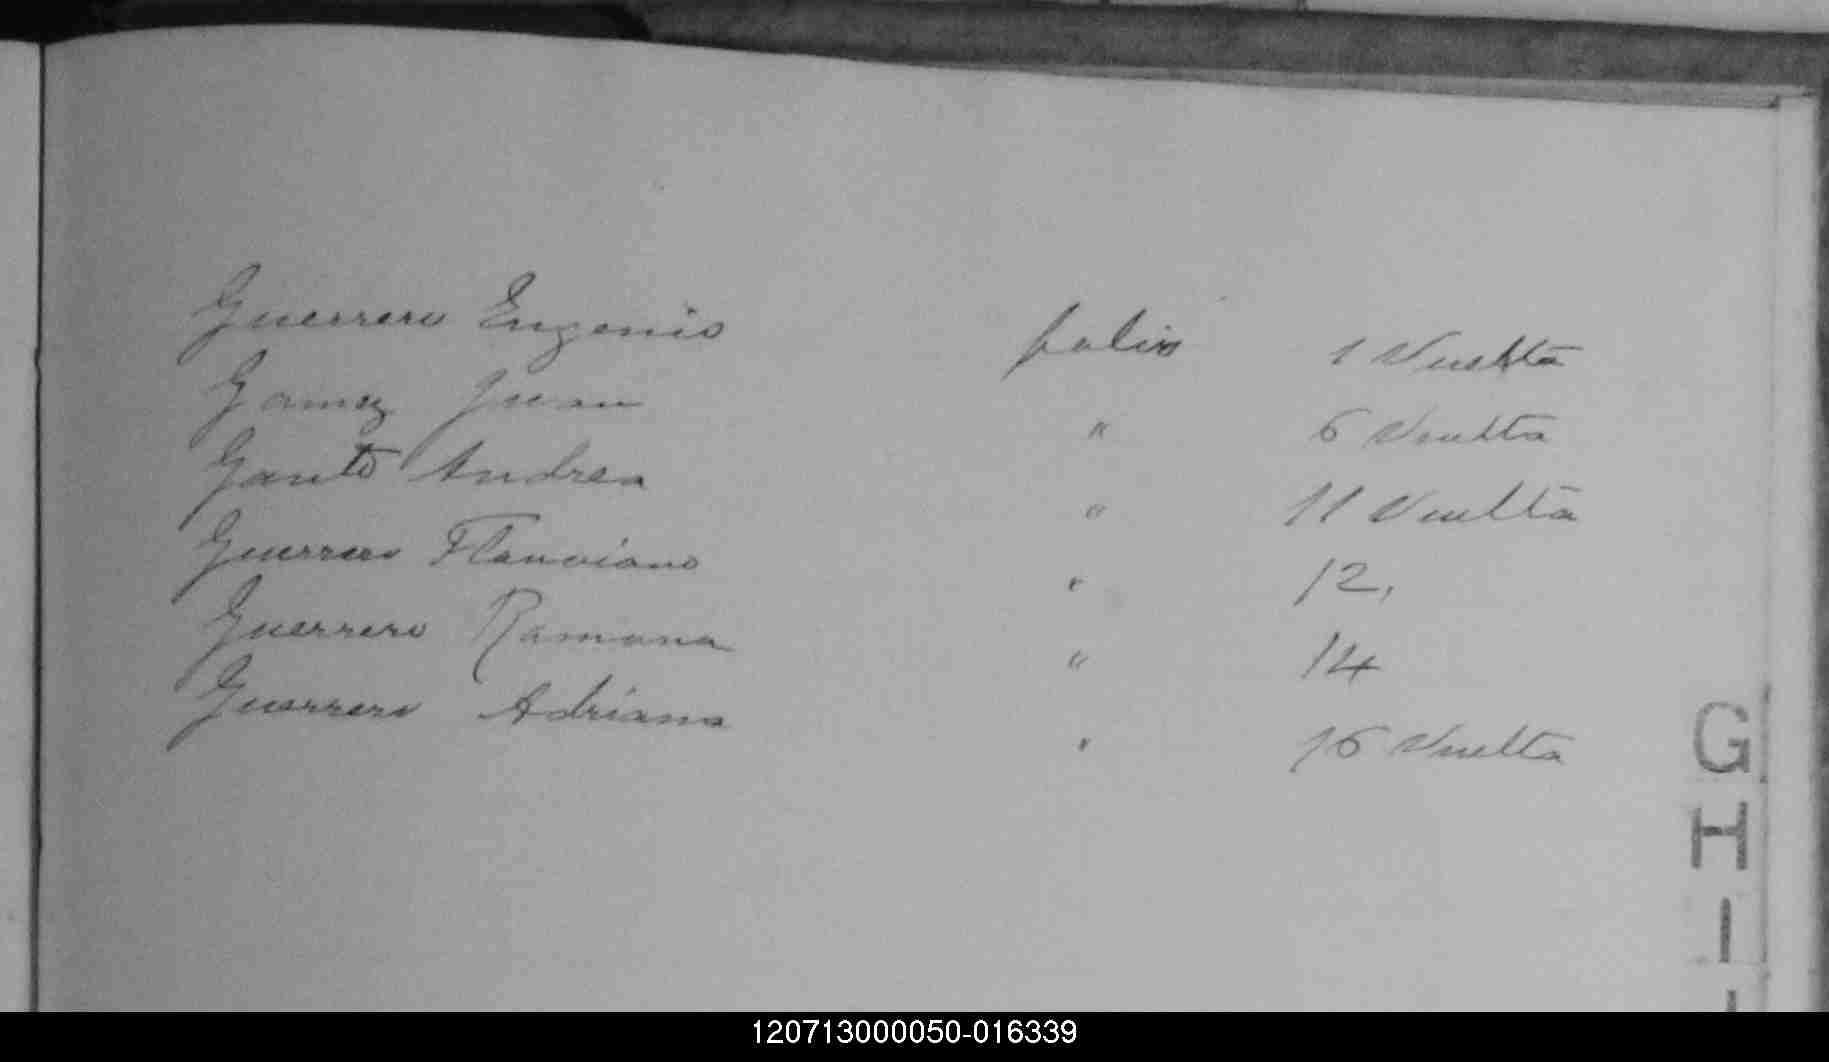 Guerrero Eugenio folio 1 Vuelta
Gamez Juan " 6 Vuelta
Gantt Andrea " 11 Vuelta
Guerrero Flaviano " 12.
Guerrero Ramona " 14
Guerrero Adriana " 16 Vuelta
G
H
I
120713000050-016339